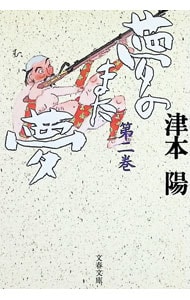 夢のまた夢
第二巻
津本 陽
文春文庫